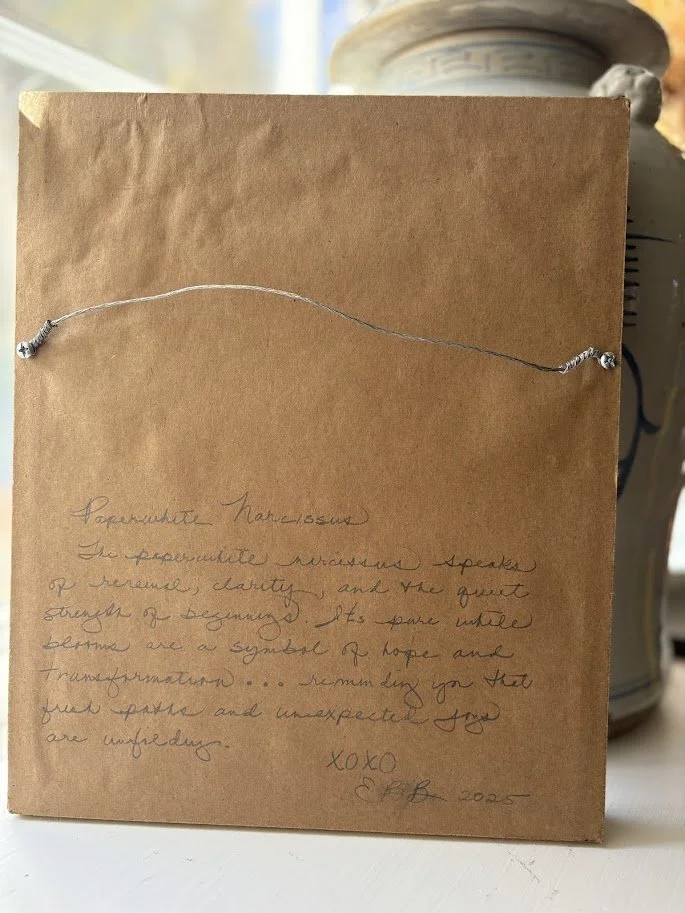 Paperwhite Narcissus
The paperwhite narcissus speaks
of renewal, clarity, and the quiet
strength of beginnings. Its pure white
blooms are a symbol of hope and
transformation... reminding you that
fresh paths and unexpected joys
are unfolding.
XOXO
EBB 2025